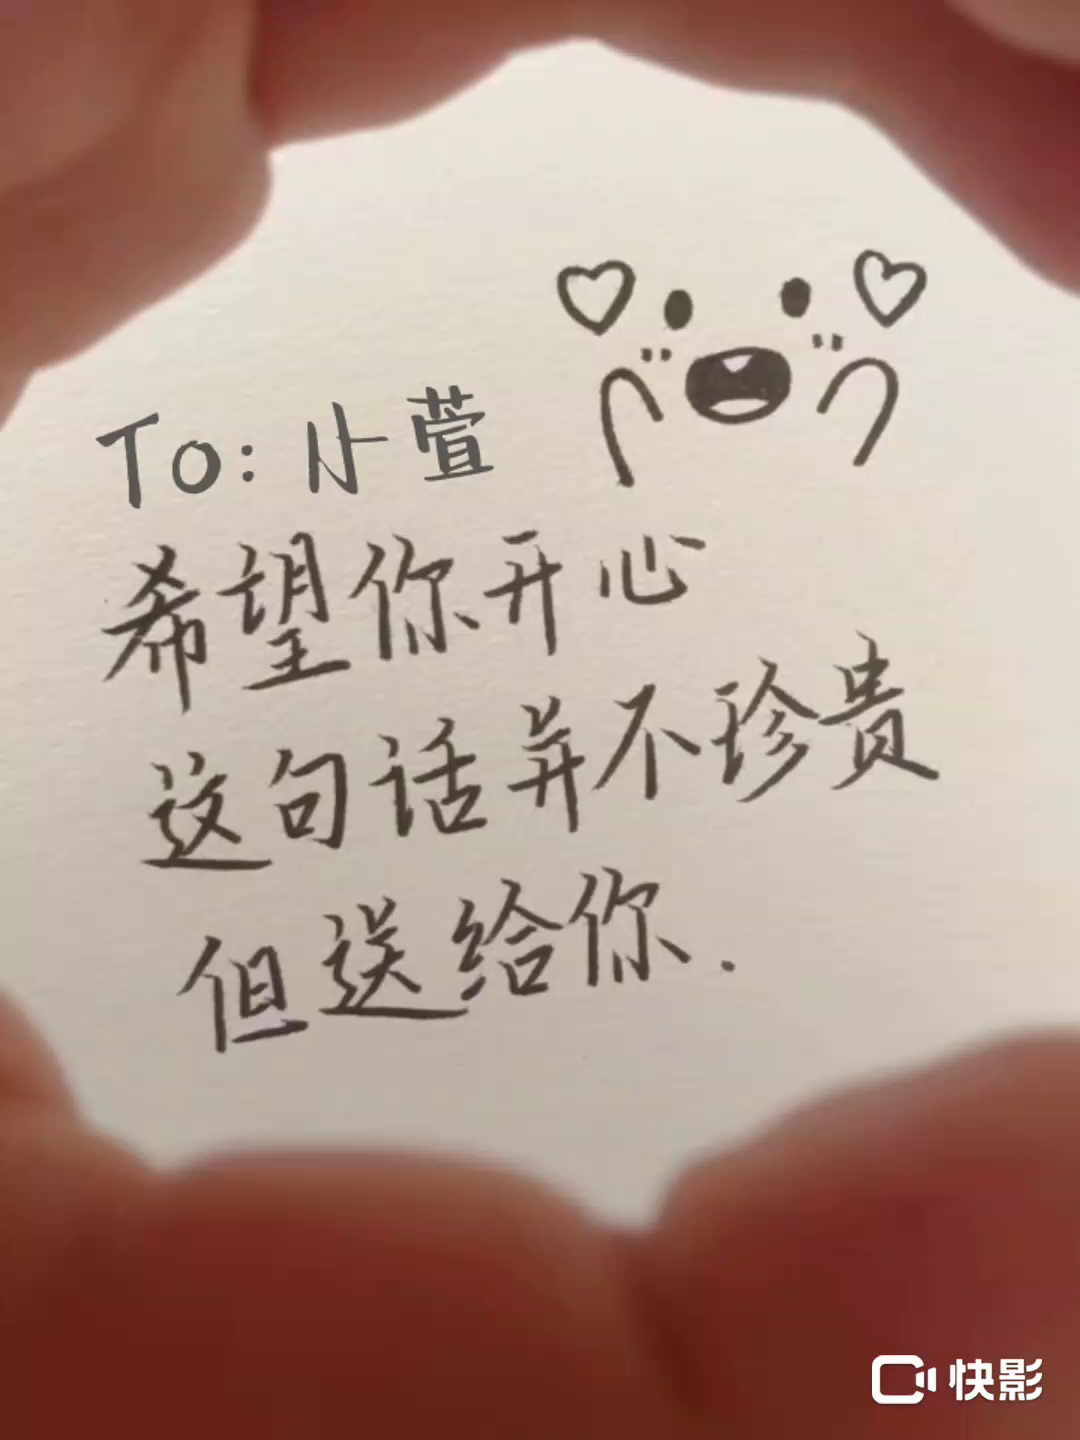 To: 小萱
希望你开心
这句话并不珍贵
但送给你.
快影